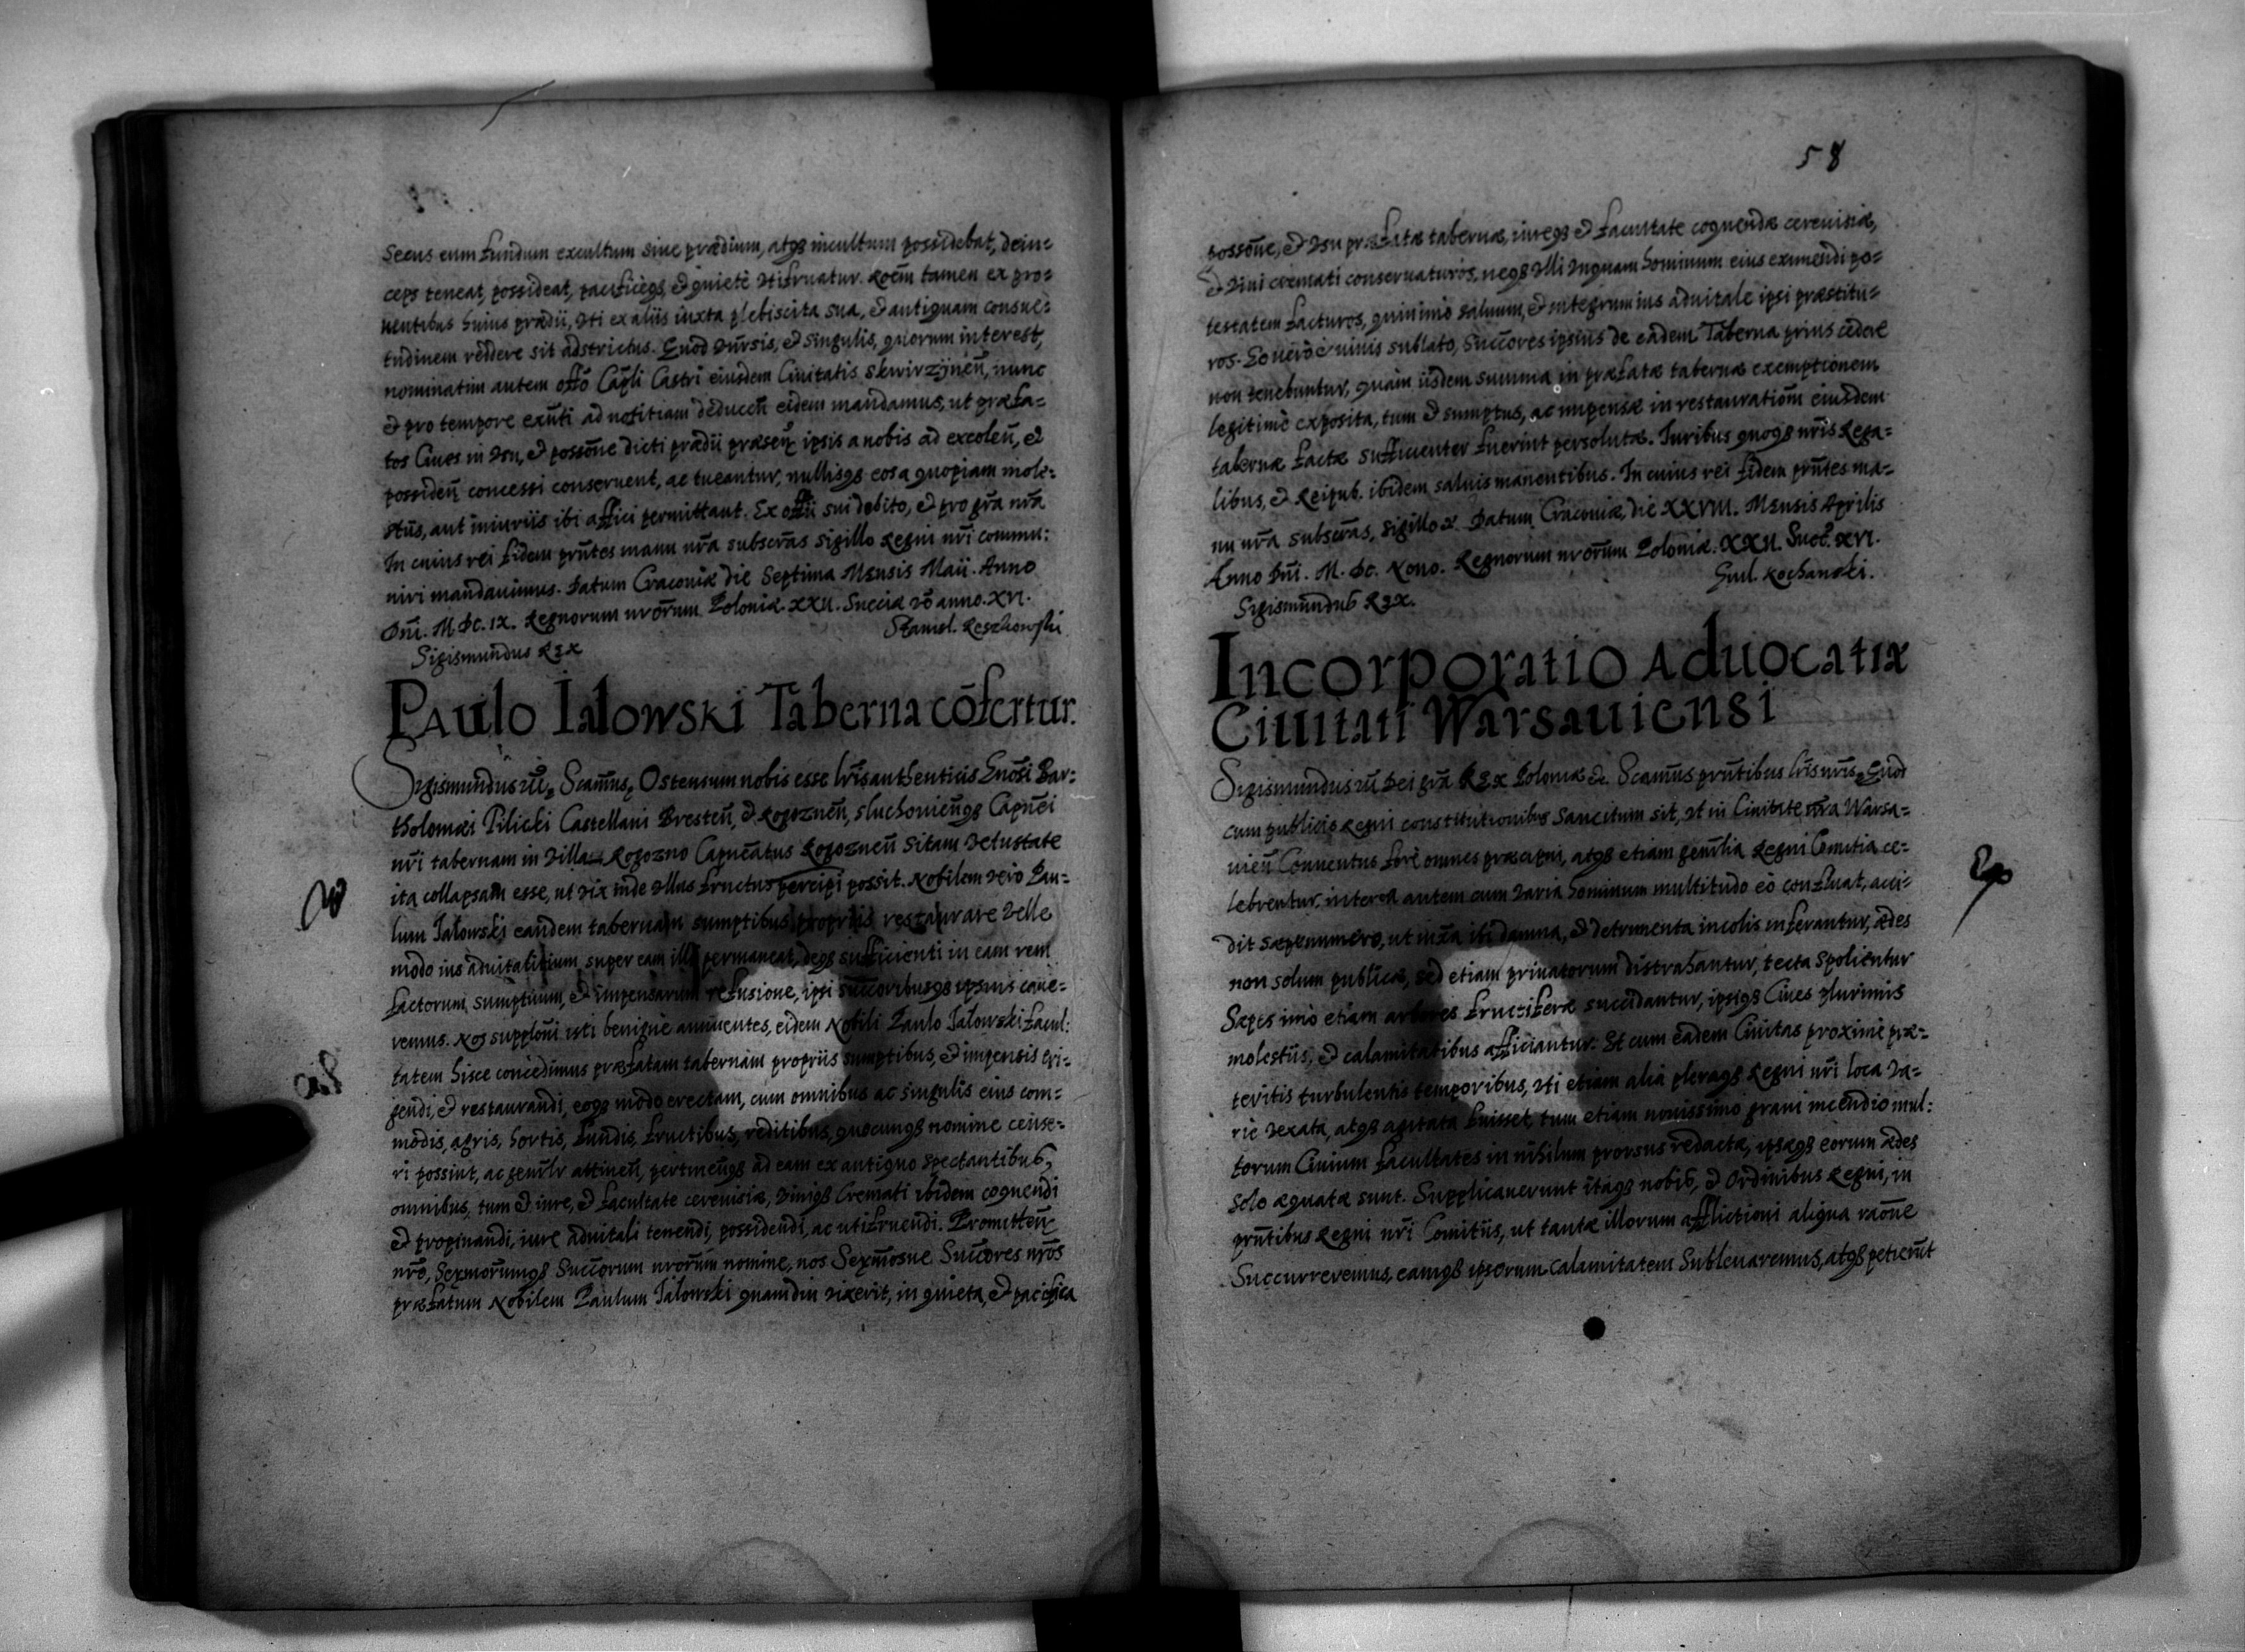 secus eum fundum excultum siue prædium, atqꝫ incultum possidebat, dein=
ceps teneat, possideat, pacificèqꝫ, & quietè vtifruatur. tamen ex pro=
uentibus huius prædii, vti ex aliis iuxta plebiscita sua, & antiquam consue=
tudinem reddere sit adstrictus. Quod vniūrsis, & singulis, quorum interest,
nominatim autem offō Capli Castri eiusdem Ciuitatis Skwirzÿneñ, nunc
& pro tempore exnti ad notitiam deduceñ eidem mandamus, ut præfa=
tos Ciues in vsu, & possōne dicti prædii præseñ ipsis a nobis ad excoleñ, &
possideñ concessi conseruent, ac tueantur, nullisqꝫ eos a quopiam mole=
stiis, aut iniuriis ibi affici permittant. Ex offii sui debito, & pro gra nra
In cuius rei fidem pntes manu nra subscras sigillo Regni nri commu:
niri mandauimus. Datum Cracouiæ die Septima Mensis Maii. Anno
Dni. M. Dc. ix. Regnorum nrorum Poloniæ. xxii. Sueciæ vō anno. xvi.
Stanisl. Reszkowski
Sigismundus Rex
Paulo Iałowski Taberna cōfertur.
Sigismundus iii. Scamus, Ostensum nobis esse lris authenticis Gnosi Bar=
tholomæi Pilicki Castellani Bresteñ, & Rogozneñ, sluchouieñqꝫ Capnei
nri tabernam in villa Rogozno Capneatus Rogozneñ sitam vetustate
ita collapsam esse, ut vix inde vllus fructus percipi possit. Nobilem vero Pau=
lum Jałowski eandem tabernam sumptibus propriis restaurare velle
modo ius aduitalitium super eam illi permaneat, deqꝫ sufficienti in eam rem
factorum sumptuum, & impensarum refusione, ipsi succoribusqꝫ ipsius caue=
remus. Nos supploni isti benignè annuentes, eidem Nobili Paulo Jałowski facul:
tatem hisce concedimus præfatam tabernam propriis sumptibus, & impensis eri=
gendi, & restaurandi, eoqꝫ modo erectam, cum omnibus ac singulis eius com=
modis, agris, hortis, fundis, fructibus, reditibus, quocunqꝫ nomine cense=
ri possint, ac genrlr attineñ, pertineñqꝫ ad eam ex antiquo spectantibus,
omnibus, tum & iure, & facultate cereuisiæ, viniqꝫ Cremati ibidem coquendi
& propinandi, iure aduitali tenendi, possidendi, ac utifruendi. Promitteñ
nro, Sermorumqꝫ Succorum nrorum nomine, nos Sermosue Succores nros
præfatum Nobilem Paulum Jałowski quamdiu vixerit, in quieta, & pacifica
58
possōne, & vsu præfatæ tabernæ, iureqꝫ & facultate coquendæ cereuisiæ,
& vini cremati conseruaturos, neqꝫ vlli vnquam hominum eius eximendi po=
testatem facturos, quinimò saluum, & integrum ius aduitale ipsi præstitu=
ros. Eo uerò è viuis sublato, Succores ipsius de eadem Taberna prius cedere
non tenebuntur, quàm iisdem summa in præfatæ tabernæ exemptionem
legitimè exposita, tum & sumptus, ac impensæ in restaurationem eiusdem
tabernæ factæ sufficienter fuerint persolutæ. Iuribus quoqꝫ nris Rega=
libus, & Reipub. ibidem saluis manentibus. In cuius rei fidem pntes ma=
nu nra subscras, sigillo &. Datum Cracouiæ, die XXVIII. Mensis Aprilis
Anno Dni. M. Dc. Nono. Regnorum nrorum Poloniæ. XXII. Suec. XVI.
Gul. Kochanski.
Sigismundus Rex.
Incorporatio Aduocatiæ
Ciuitati Warsauiensi
Sigismundus iii Dei gra Rex Poloniæ &. Scamus pntibus lris nris, Quod
cum publicis Regni constitutionibus sancitum sit, vt in Ciuitate nra Warsa=
uieñ Conuentus ferè omnes præcipui, atqꝫ etiam genrlia Regni Comitia ce=
lebrentur, interea autem cum varia hominum multitudo eò confluat, acci=
dit sæpenumero, ut iti damna, & detrimenta incolis inferantur, ædes
non solum publicæ, sed etiam priuatorum distrahantur, tecta spolientur
Sæpes imò etiam arbores fructiferæ succidantur, ipsiqꝫ Ciues plurimis
molestiis, & calamitatibus afficiantur. Et cum eadem Ciuitas proximè præ=
teritis turbulentis temporibus, vti etiam alia pleraqꝫ Regni nri loca va=
riè vexata, atqꝫ agitata fuisset, tum etiam nouissimo graui incendio mul:
torum Ciuium facultates in nihilum prorsus redactæ, ipsæqꝫ eorum ædes
solo æquatæ sunt. Supplicauerunt itaqꝫ nobis, & Ordinibus Regni, in
pntibus Regni nri Comitiis, ut tantæ illorum afflictioni aliqua raōne
Succurreremus, eamqꝫ ipsorum calamitatem subleuaremus, atqꝫ petierunt